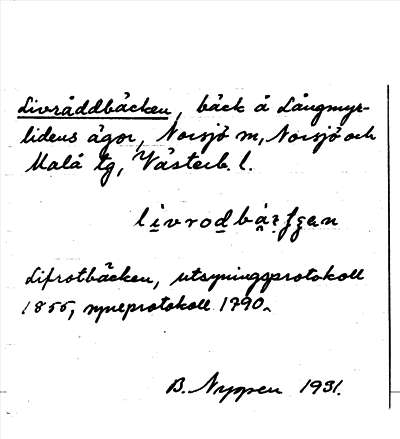 Livråddbäcken, bäck å Långmyr-
lidens ägor, Norsjö m, Norsjö och
Malå tg, Västerb. l.
Lifrotbäcken, utsyningsprotokoll
1855, syneprotokoll 1790.
B. Nyppen 1931.